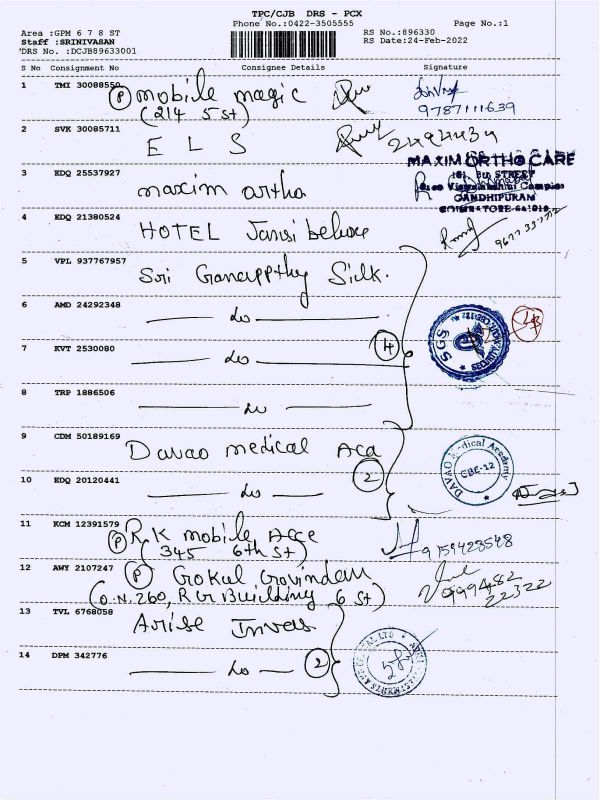 TPC/CJB DRS - PCX
Phone No.:0422-3505555 Page No.:1
Area :GPM 6 7 8 ST RS No.:896330
Staff :SRINIVASAN RS Date:24-Feb-2022
DRS No. :DCJB89633001
S No Consignment No Consignee Details Signature
1 TMI 30088550 (P) mobile magic
(214 5 st) 9787111639
2 SVK 30085711 E L S 2494434
MAXIM ORTHO CARE
3 EDQ 25537927 maxim ortho 181, 5th STREET
GANDHIPURAM
4 EDQ 21380524 HOTEL Jansi
5 VPL 937767957 Sri Ganappthy Silk.
6 AMD 24292348 do
7 KVT 2530080 do 4 SGS
8 TRP 1886506 do
9 CDM 50189169 Davao medical Aca DAVAO Medical Academy
CBE-12
10 EDQ 20120441 do 2
11 KCM 12391579 (P) R.K mobile Acce
(345 6th St) 9159423548
12 AWY 2107247 (P) Gokul Govindam 999482
(O.N.260, R Building 6 St) 22322
13 TVL 6768058 Arise Inves
14 DPM 342776 do 2 58